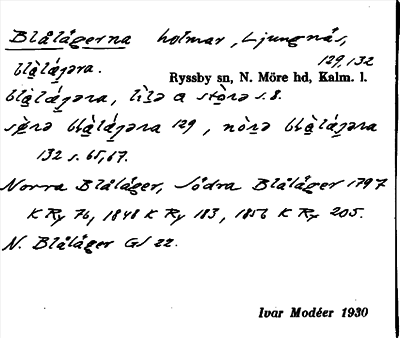 Blålågerna holmar, Ljungnäs,
129, 132
blå̀lá̱gəra.
Ryssby sn, N. Möre hd, Kalm. l.
blå̀lá̱gəra, lìlə a stò̱rə s. 8.
sø̀rə blå̀lá̱gəra 129, nò̱rə blå̀lá̱gəra
132 s. 65, 67.
Norra Blålåger, Södra Blålåger 1797
K Ry 76, 1848 K Ry 183, 1856 K Ry 205.
N. Blålåger GS 22.
Ivar Modéer 1930